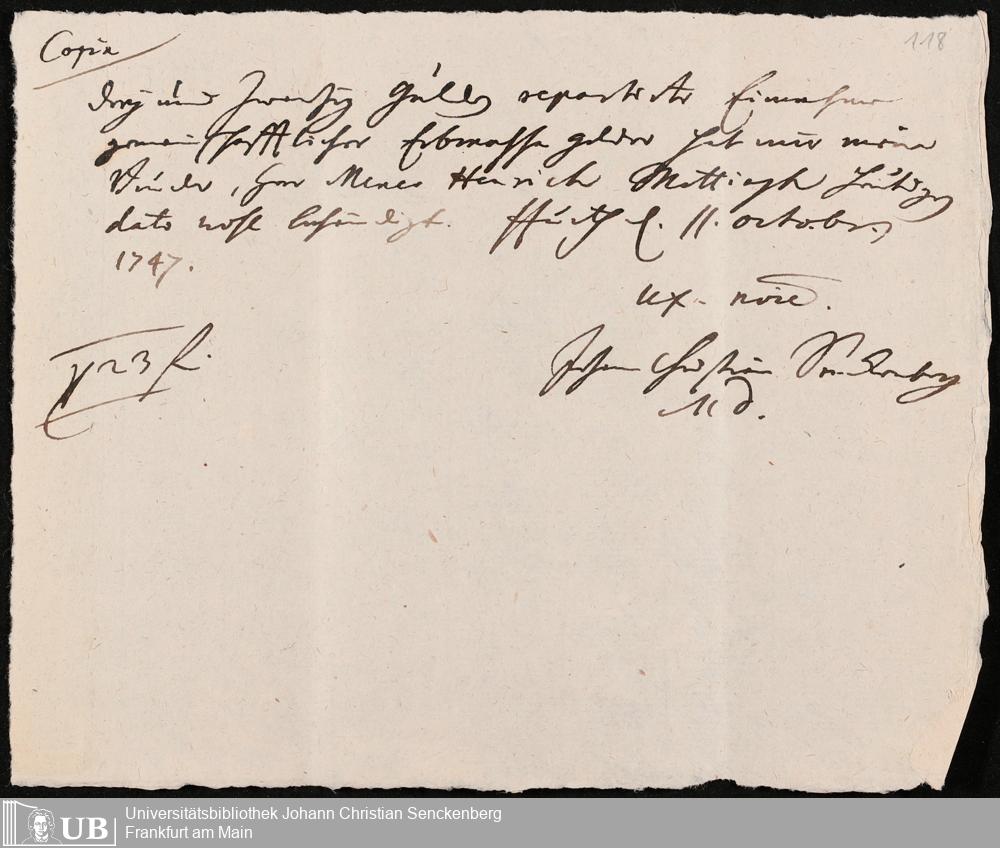 Copia
118
Drey und Zwanzig Gulden repartirte Einnahme
gemeinschafftlicher Erbmasse gelder hat mir mein
Herr Henrich heutigen
dato wohl behändigt. Ffurth d. 11. octobr.
1747.
ux. noie.
23 f.
Johann Christian Senckenberg
MD.
UB
Universitätsbibliothek Johann Christian Senckenberg
Frankfurt am Main